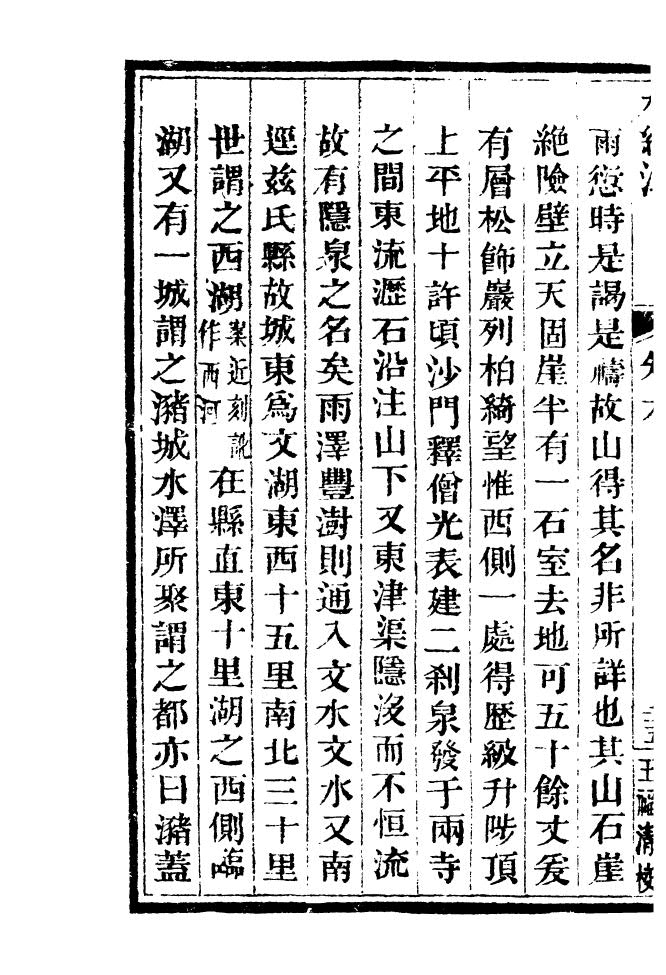 雨愆時是謁是禱故山得其名非所詳也其山石崖
絶險壁立天固崖半有一石室去地可五十餘丈爰
有層松飾巖列柏綺望惟西側一處得歷級升陟頂
上平地十許頃沙門釋僧光表建二刹泉發于兩寺
之間東流瀝石沿注山下又東津渠隱沒而不恒流
故有隱泉之名矣雨澤豐澍則通入文水文水又南
逕茲氏縣故城東爲文湖東西十五里南北三十里
世謂之西湖案近刻訛作西河在縣直東十里湖之西側臨
湖又有一城謂之瀦城水澤所聚謂之都亦曰瀦蓋